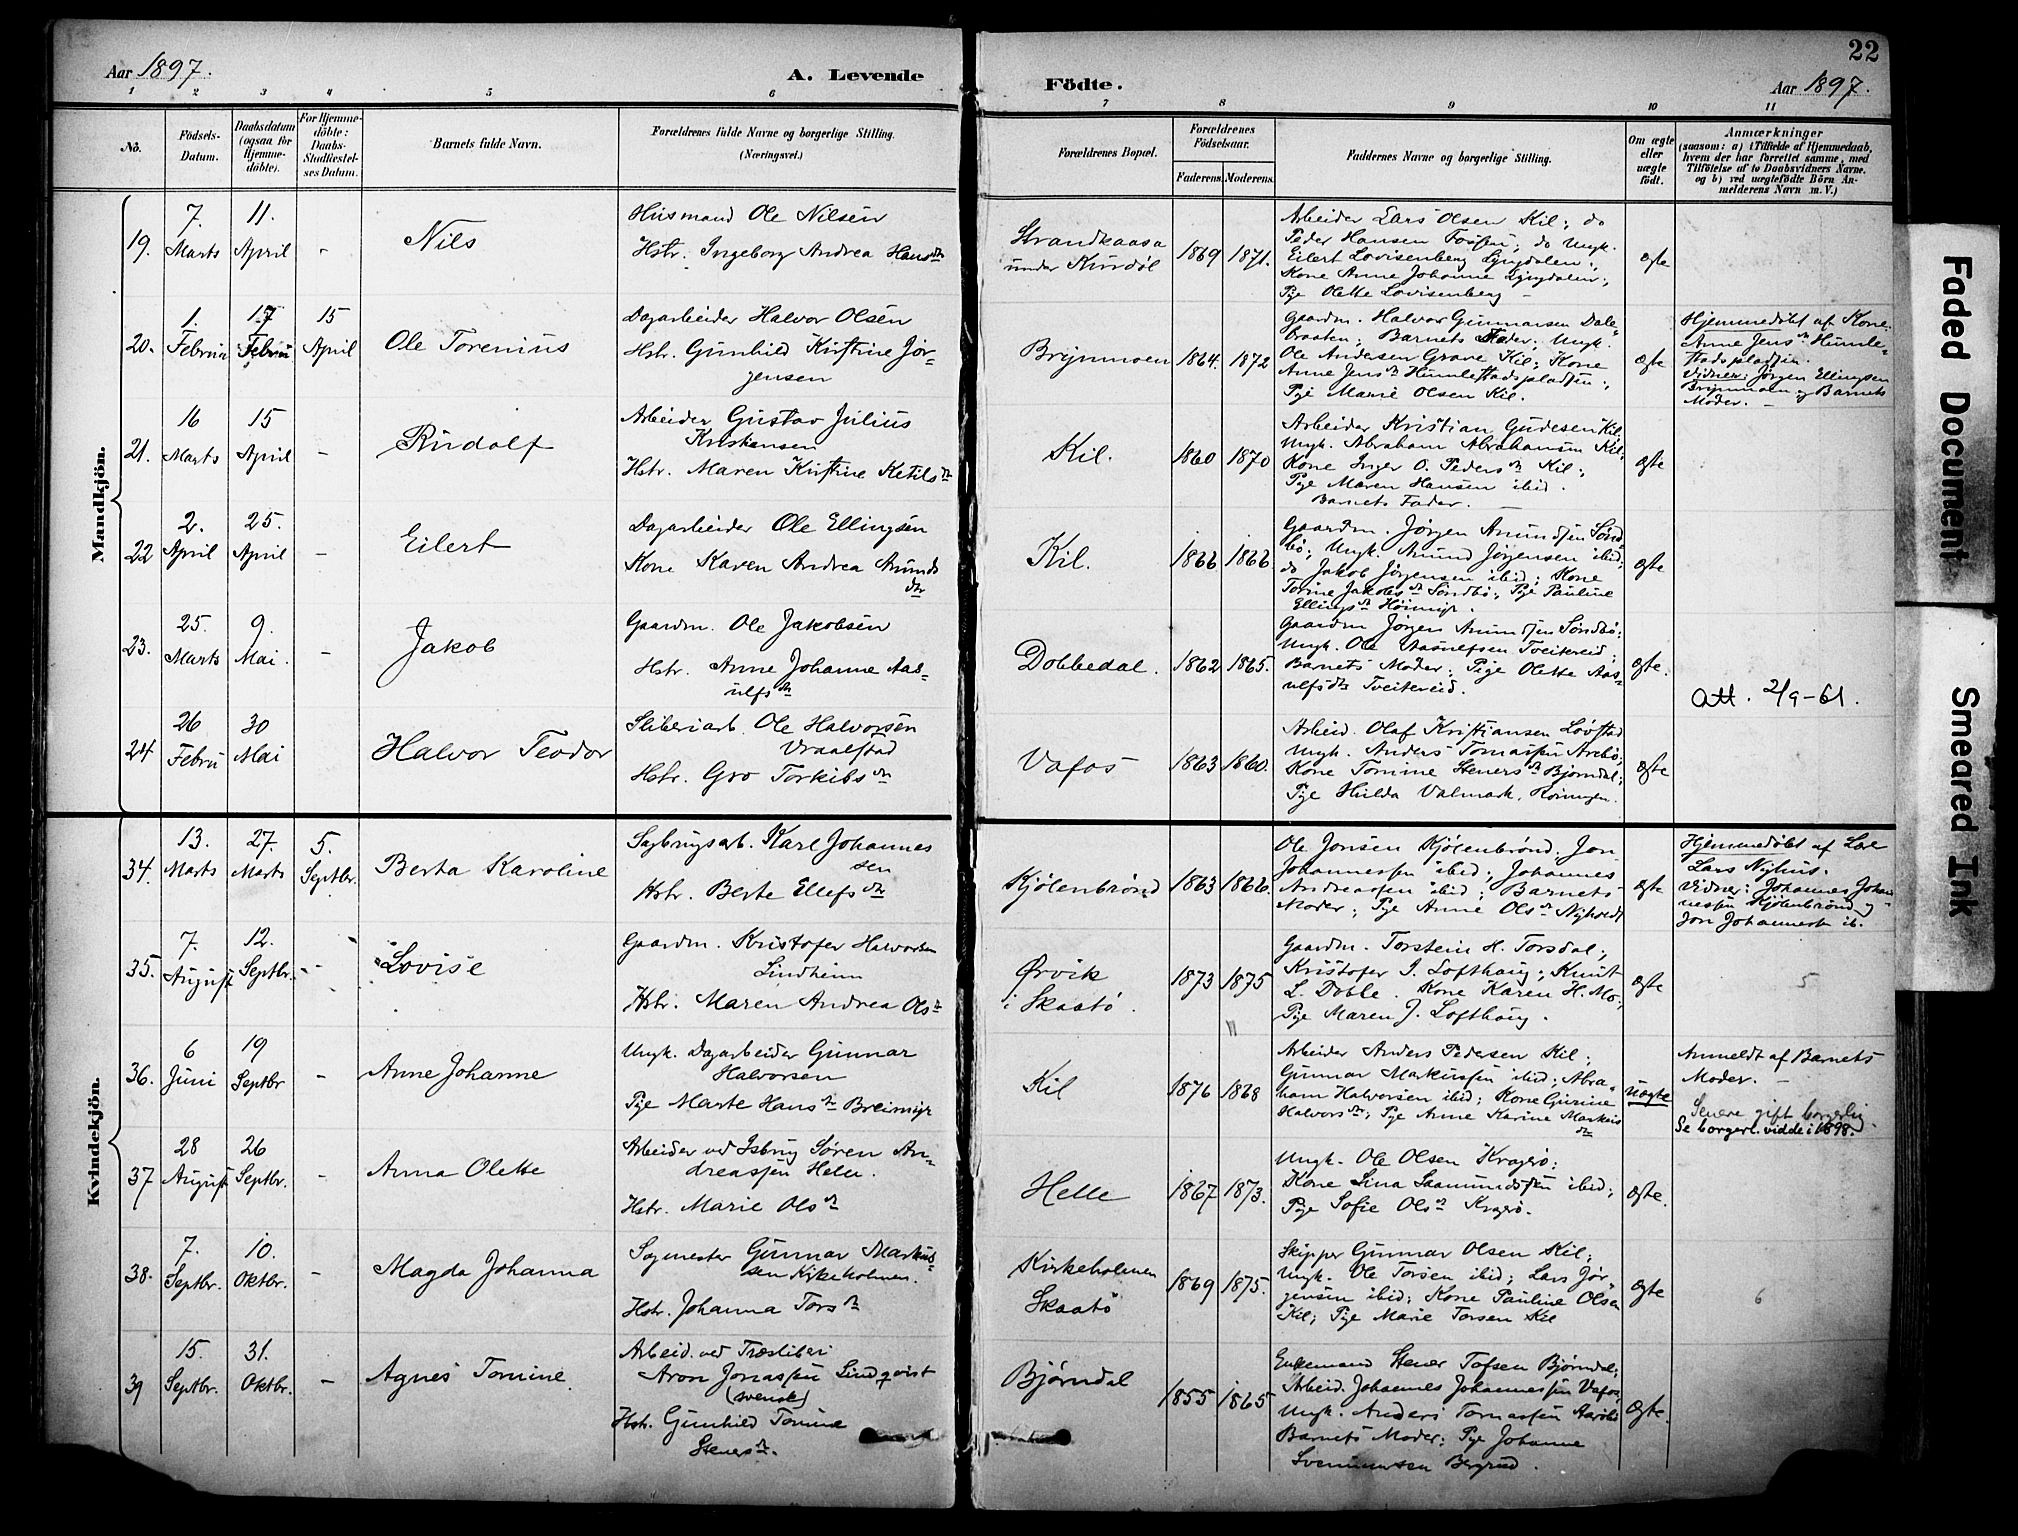 Aar 1897.
A. Levende
Födte.
Aar 1897.
22
1 2 3 4 5 6 7 8 9 10 11
No.
Födsels-Datum.
Daabsdatum (ogsaa for Hjemme-döbte).
For Hjemme-döbte: Daabs-Stadfæstel-ses Datum.
Barnets fulde Navn.
Forældrenes fulde Navne og borgerlige Stilling.
(Næringsvei.)
Forældrenes Bopæl.
Forældrenes Födselsaar.
Faderens. Moderens.
Faddernes Navne og borgerlige Stilling.
Om ægte eller uægte födt.
Anmærkninger
(saasom: a) i Tilfælde af Hjemmedaab,
hvem der har forrettet samme, med
Tilföielse af to Daabsvidners Navne.
og b) ved uægtefödte Börn An-
melderens Navn m. V.)
Mandkjön.
19. 7. Marts 11. April - Nils
Husmand Ole Nilsen
Hstr. Ingeborg Andrea Hansdtr
Strandkaasa
under Kurdøl
1869 1871.
Arbeider Lars Olsen Kil; do
Peder Hansen Fossen; do Ungk.
Eilert Lovisenberg Lyngdalen.
Kone Anne Johanne Lyngdalen;
Pige Olette Lovisenberg -
ægte
20. 1. Februa 17 Februa 15 April Ole Torenius
Dagarbeider Halvor Olsen
Hstr. Gunhild Kirstine Jør-
gensen
Brynmoen
1864. 1872
Gaardm. Halvor Gunnarsen Dale-
braaten; Barnets Fader; Ungk.
Ole Andersen Grave Kil; Kone
Anne Jensdtr Humlestadspladsen;
Pige Marie Olsen Kil.
ægte
Hjemmedøbt af Kone
Anne Jensdtr Humle-
stadspladsen.
Vidner: Jørgen Ellingsen
Brynmoen og Barnets
Moder. -
21. 16 Marts 15 April - Rudolf
Arbeider Gustav Julius
Kristiansen
Hstr. Maren Kirstine Ketilsdtr
Kil.
1860 1870
Arbeider Kristian Gudesen Kil.
Ungk. Abraham Abrahamsen Kil;
Kone Inger O. Pedersdtr Kil;
Pige Maren Hansen ibid.
Barnets Fader.
ægte
22 2. April 25. April - Eilert
Dagarbeider Ole Ellingsen
Kone Karen Andrea Anunds
dtr
Kil.
1866 1866
Gaardm. Jørgen Anundsen Sønd
bø; Ungk. Anund Jørgensen ibid;
do Jakob Jørgensen ibid; Kone
Torine Jakobsdtr Søndbø; Pige Pauline
Ellingsdtr Høimyr.
ægte
23. 25. Marts 9. Mai. - Jakob
Gaardm. Ole Jakobsen
Hstr. Anne Johanne Aas-
ulfsdtr
Dobbedal.
1862 1865.
Gaardm Jørgen Anundsen Søndbø;
Ungk. Ole Aasulfsen Tveitereid;
Barnets Moder; Pige Olette Aas-
ulfsdtr Tveitereid.
ægte.
Att. 2/9-61.
24 26 Febru 30 Mai Halvor Teodor
Sliberiarb. Ole Halvorsen
Vraalstad
Hstr. Gro Torkilsdtr
Vafos
1863 1860.
Arbeid. Olaf Kristiansen Løvstad
Ungk. Anders Tomassen Aarebø;
Kone Tomine Stenersdtr Bjørndal;
Pige Hulda Valmark,
ægte
Kvindekjön.
34. 13. Marts 27. Marts 5. Septbr. Berta Karoline
Sagbrugsarb. Karl Johannes
sen
Hstr. Berte Ellefsdtr
Kjølenbrønd
1863 1866.
Ole Jonsen Kjølenbrønd. Jon
Johannessen ibid; Johannes
Andreassen ibid; Barnets
Moder; Pige Anne Olsdtr
ægte
Hjemmedøbt af
Lars Nyhus.
Vidner: Johannes Johan
nessen Kjølenbrønd og
Jon Johannessen ib.
35. 7. August 12. Septbr. - Lovise
Gaardm. Kristofer Halvorsen
Lindheim
Hstr. Maren Andrea Olsdtr
Ørvik
i Skaatø.
1873 1875
Gaardm. Torstein H. Torsdal;
Kristofer J. Lofthaug; Knut
L. Doble. Kone Karen H. Mo;
Pige Maren J. Lofthaug.
ægte
5
36. 6 Juni 19 Septbr - Anne Johanne
Ungk. Dagarbeider Gunnar
Halvorsen
Pige Marte Hansdtr Breimyr
Kil
1876 1868
Arbeider Anders Pedersen Kil;
Gunnar Markussen ibid; Abra-
ham Halvorsen ibid; Kone Gurine
Halvorsdtr; Pige Anne Karine Markus
dtr
uægte
Anmeldt af Barnets
Moder. -
Senere gift borgerlig
Se borgerl. vidde i 1898.
37 28 August 26 Septbr. - Anna Olette
Arbeider ved Isbrug Søren An-
dreassen Helle.
Hstr. Marie Olsdtr
Helle
1867 1873.
Ungk. Ole Olsen Kragerø;
Kone Lina Saamundsen ibid;
Pige Sofie Olsdtr Kragerø.
ægte.
38. 7. Septbr. 10. Oktbr. - Magda Johanna
Sagmester Gunnar Markus
sen Kirkeholmen.
Hstr. Johanna Torsdtr
Kirkeholmen
Skaatø
1869 1875.
Skipper Gunnar Olsen Kil;
Ungk. Ole Torsen ibid; Lars Jør-
gensen ibid; Kone Pauline Olsen
Kil; Pige Marie Torsen Kil
ægte
6
39 15. Septbr. 31. Oktbr. - Agnes Tomine.
Arbeid. ved Træsliberi
Aron Jonassen Lindqvist
(svensk)
Hstr. Gunhild Tomine
Stenersdtr.
Bjørndal
1855 1865
Enkemand Stener Tofsen Bjørndal;
Arbeid. Johannes Johannessen Vafos;
Ungk. Anders Tomassen Aarebø
Barnets Moder; Pige Johanne
ægte.
Faded Document
Smeared Ink